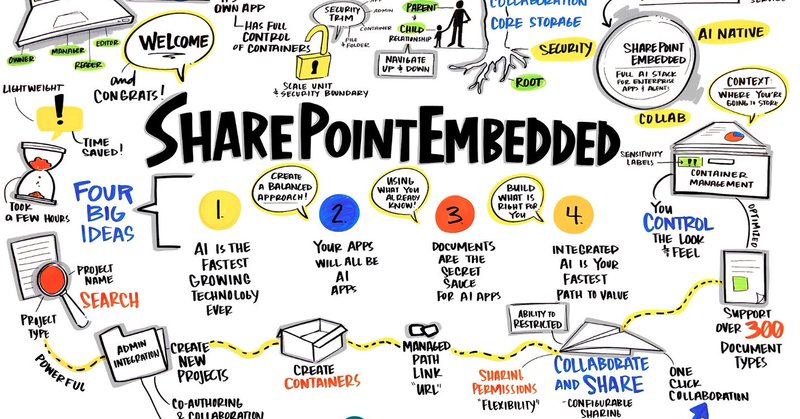 OWN APP
HAS FULL
CONTROL
OF CONTAINERS
OWNER
MANAGER
READER
EDITOR
WELCOME
and
CONGRATS!
SECURITY
TRIM
ADMIN
CONTAINER
FILE
FOLDER
SCALE UNIT
& SECURITY BOUNDARY
PARENT
CHILD
RELATIONSHIP
NAVIGATE
UP & DOWN
COLLABORATION
CORE STORAGE
ROOT
SECURITY
AI NATIVE
COLLAB
SHAREPOINT
EMBEDDED
FULL AI STACK
FOR ENTERPRISE
APPS & AGENTS
CONTEXT:
WHERE YOU'RE
GOING TO STORE
LIGHTWEIGHT
!
TIME
SAVED!
TOOK
A FEW HOURS
SHAREPOINT EMBEDDED
SENSITIVITY
LABELS
CONTAINER
MANAGEMENT
YOU
CONTROL
THE LOOK
& FEEL
OPTIMIZED
FOUR
BIG
IDEAS
1.
AI IS THE
FASTEST
GROWING
TECHNOLOGY
EVER
CREATE
A BALANCED
APPROACH!
2.
YOUR APPS
WILL ALL BE
AI
APPS
USING
WHAT YOU
ALREADY
KNOW!
3.
DOCUMENTS
ARE THE
SECRET
SAUCE
FOR AI APPS
BUILD
WHAT IS
RIGHT FOR
YOU
4.
INTEGRATED
AI IS YOUR
FASTEST
PATH TO VALUE
PROJECT
NAME
SEARCH
PROJECT
TYPE
POWERFUL
ADMIN
INTEGRATION
CREATE
NEW
PROJECTS
CO-AUTHORING
& COLLABORATION
CREATE
CONTAINERS
MANAGED
PATH
LINK
"URL"
ABILITY TO
RESTRICTED
SHARING
PERMISSIONS
"FLEXIBILITY"
COLLABORATE
AND SHARE
-CONFIGURABLE
SHARING
ONE
CLICK
COLLABORATION
SUPPORT
OVER 300
DOCUMENT
TYPES